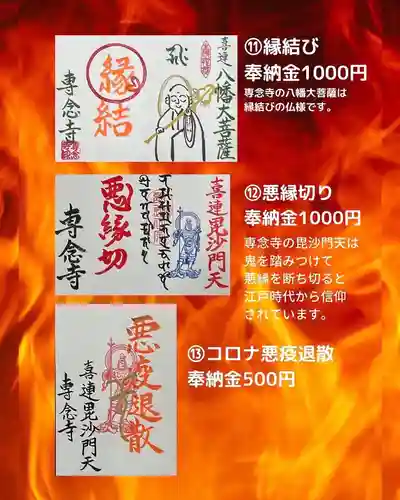 ⑪縁結び
奉納金1000円
専念寺の八幡大菩薩は
縁結びの仏様です。
喜連八幡大菩薩
飛
縁結
専念寺
⑫悪縁切り
奉納金1000円
専念寺の毘沙門天は
鬼を踏みつけて
悪縁を断ち切ると
江戸時代から信仰
されています。
喜連毘沙門天
悪縁切
専念寺
⑬コロナ悪疫退散
奉納金500円
悪疫退散
喜連毘沙門天
専念寺